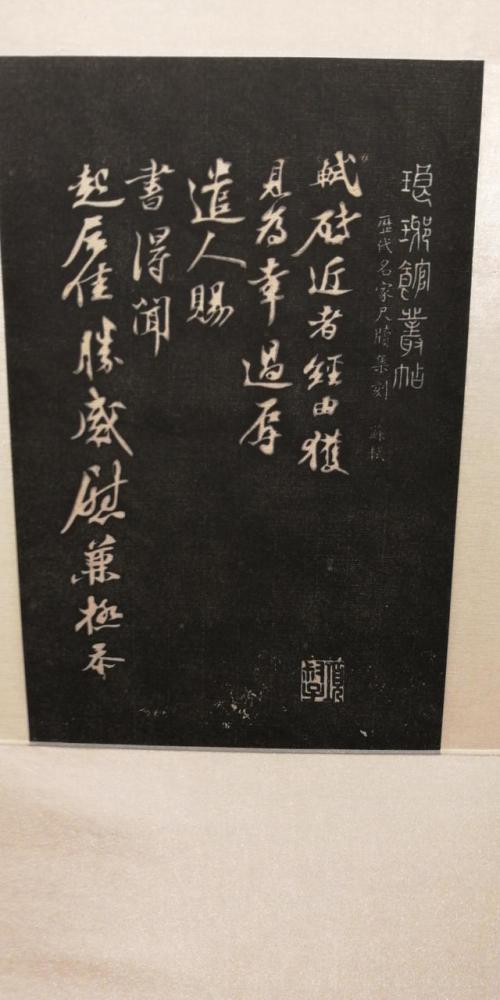 琅琊館叢帖
歷代名家尺牘集刻 蘇軾
軾啟近者經由獲
見為幸過辱
遣人賜
書得聞
起居佳勝感慰兼極忝